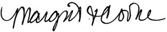 Margrit H Cooke